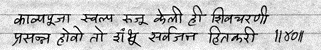 काव्यपूजा स्वल्प रुजू केली ही शिवचरणी
प्रसन्न होवो तो शंभू सर्वजन हितकरी ॥४०॥